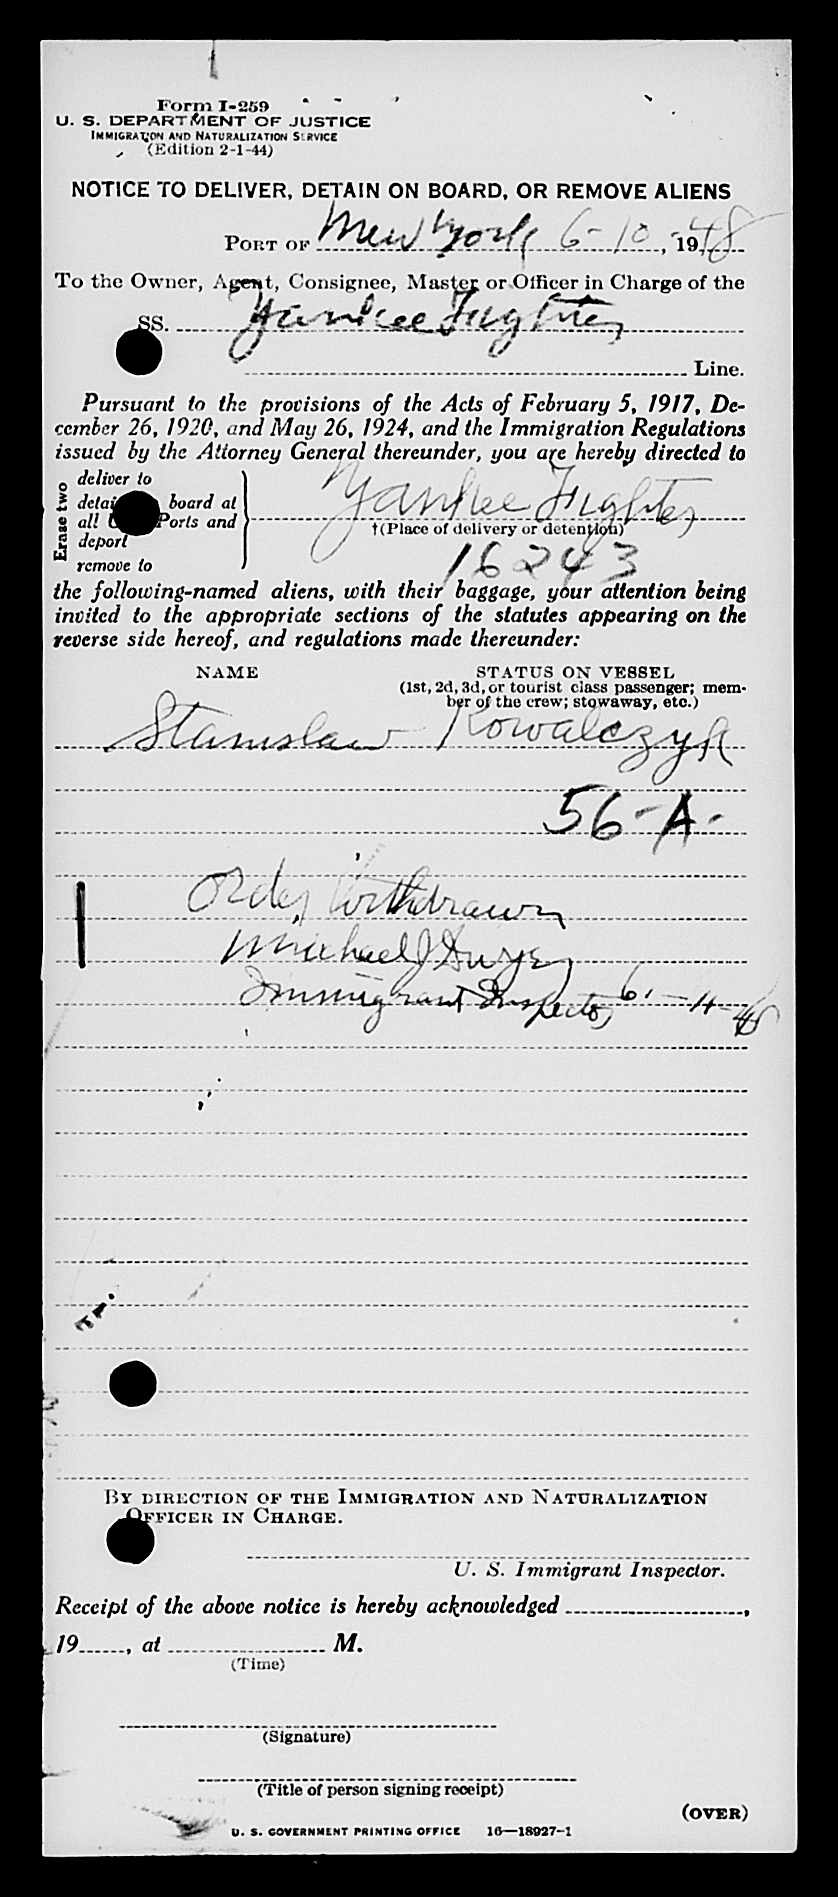 Form I-259
U. S. DEPARTMENT OF JUSTICE
IMMIGRATION AND NATURALIZATION SERVICE
(Edition 2-1-44)
NOTICE TO DELIVER, DETAIN ON BOARD, OR REMOVE ALIENS
PORT OF New York 6-10, 1948
To the Owner, Agent, Consignee, Master or Officer in Charge of the
SS. Yankee Fighter
Line.
Pursuant to the provisions of the Acts of February 5, 1917, De-
cember 26, 1920, and May 26, 1924, and the Immigration Regulations
issued by the Attorney General thereunder, you are hereby directed to
Erase two
deliver to
board at
all Ports and
deport
remove to
Yankee Fighter
†(Place of delivery or detention)
16243
the following-named aliens, with their baggage, your attention being
invited to the appropriate sections of the statutes appearing on the
reverse side hereof, and regulations made thereunder:
NAME STATUS ON VESSEL
(1st, 2d, 3d, or tourist class passenger; mem-
ber of the crew; stowaway, etc.)
Stanislaw Kowalczyk
56-A-
Order Withdrawn
Michael J Dwyer
Immigrant Inspector 6-11-48
BY DIRECTION OF THE IMMIGRATION AND NATURALIZATION
OFFICER IN CHARGE.
U. S. Immigrant Inspector.
Receipt of the above notice is hereby acknowledged ,
19 , at M.
(Time)
(Signature)
(Title of person signing receipt)
(OVER)
U. S. GOVERNMENT PRINTING OFFICE 16—18927-1